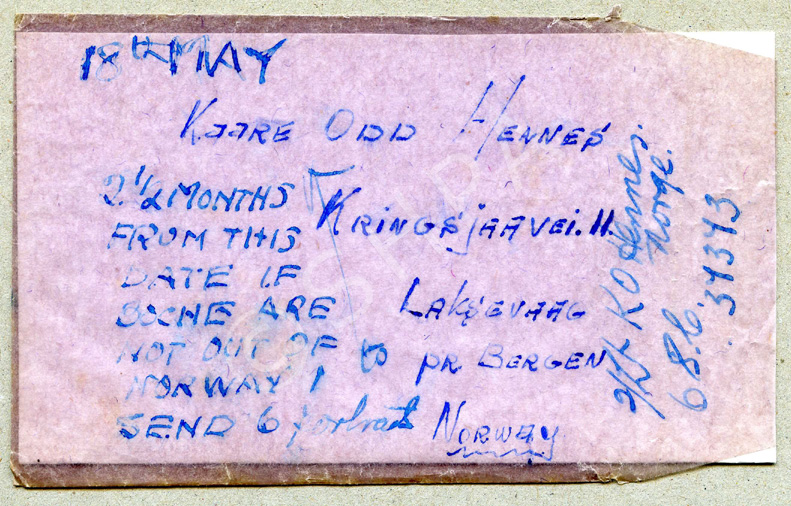 18TH MAY
KAARE ODD HENNES
KRINGSJAAVEI. 11.
LAKSEVAAG
pr. BERGEN
NORWAY
2 1/2 MONTHS
FROM THIS
DATE IF
BOCHE ARE
NOT OUT OF
NORWAY I
SEND 6 portrait
to
K O Hennes.
Norge.